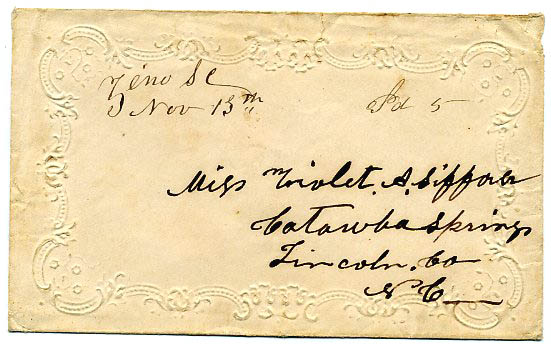 Zeno SC
Nov 13th
Pd 5
Miss Violet. A. Sifford
Catawba Springs
Lincoln. Co
N C